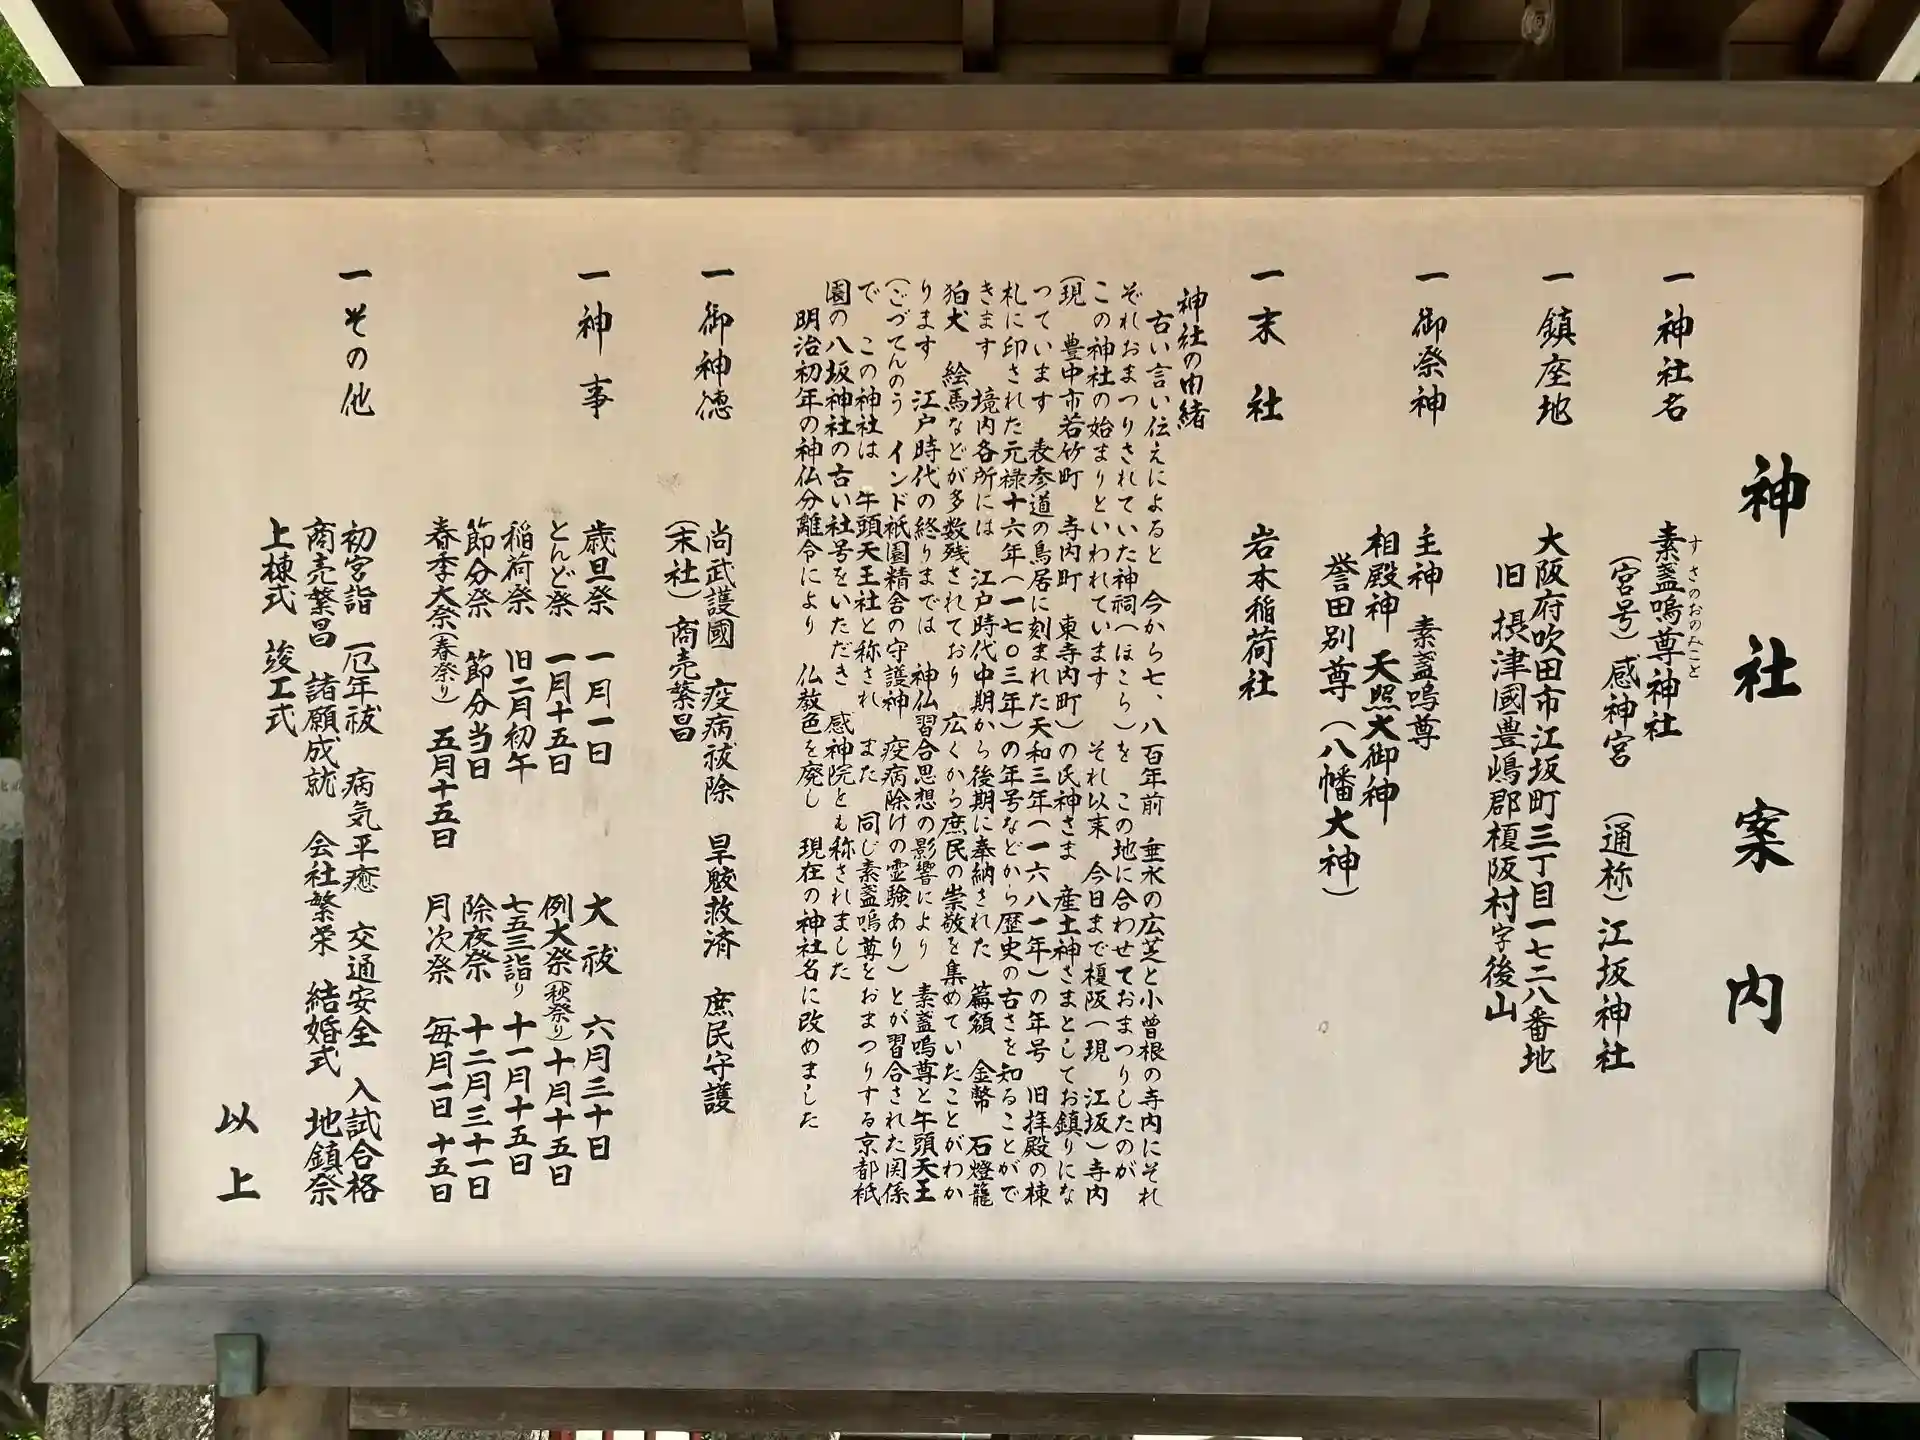 神社案内
一 神社名 素盞嗚尊神社
すさのおのみこと
(宮号)感神宮 (通称)江坂神社
一 鎮座地 大阪府吹田市江坂町三丁目一七二八番地
旧 摂津國豊嶋郡榎阪村字後山
一 御祭神 主神 素盞嗚尊
相殿神 天照大御神
誉田別尊(八幡大神)
一 末社 岩本稲荷社
神社の由緒
古い言い伝えによると 今から七、八百年前 垂水の広芝と小曽根の寺内にそれ
ぞれおまつりされていた神祠(ほこら)を この地に合わせておまつりしたのが
この神社の始まりといわれています それ以末 今日まで榎阪(現 江坂)寺内
(現 豊中市若竹町 寺内町 東寺内町)の氏神さま 産土神さまとしてお鎮りにな
っています 表参道の鳥居に刻まれた天和三年(一六八一年)の年号 旧拝殿の棟
札に印された元禄十六年(一七〇三年)の年号などから歴史の古さを知ることがで
きます 境内各所には 江戸時代中期から後期に奉納された 扁額 金幣 石燈籠
狛犬 絵馬などが多数残されており 広くから庶民の崇敬を集めていたことがわか
ります 江戸時代の終りまでは 神仏習合思想の影響により 素盞嗚尊と午頭天王
(ごづてんのう インド祇園精舎の守護神 疫病除けの霊験あり)とが習合された関係
で この神社は 午頭天王社と称され また 同じ素盞嗚尊をおまつりする京都祇
園の八坂神社の古い社号をいただき 感神院とも称されました
明治初年の神仏分離令により 仏教色を廃し 現在の神社名に改めました
一 御神徳 尚武護國 疫病祓除 旱魃救済 庶民守護
(末社)商売繁昌
一 神事 歳旦祭 一月一日 大祓 六月三十日
とんど祭 一月十五日 例大祭(秋祭り)十月十五日
稲荷祭 旧二月初午 七五三詣り 十一月十五日
節分祭 節分当日 除夜祭 十二月三十一日
春季大祭(春祭り) 五月十五日 月次祭 毎月一日十五日
一 その他 初宮詣 厄年祓 病気平癒 交通安全 入試合格
商売繁昌 諸願成就 会社繁栄 結婚式 地鎮祭
上棟式 竣工式
以上